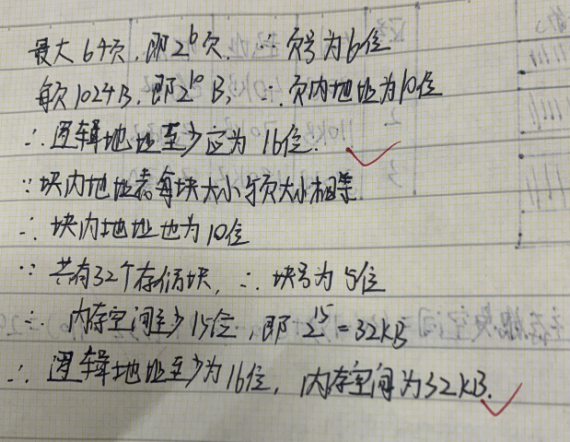 最大64页,即2⁶页.∴页号为6位
每页1024B,即2¹⁰B,∴页内地址为10位
∴逻辑地址至少应为16位.
∵块内地址每块大小与页大小相等.
∴块内地址也为10位
∵共有32个存储块,∴块号为5位
∴内存空间至少15位,即2¹⁵=32KB
∴逻辑地址至少为16位,内存空间为32KB.